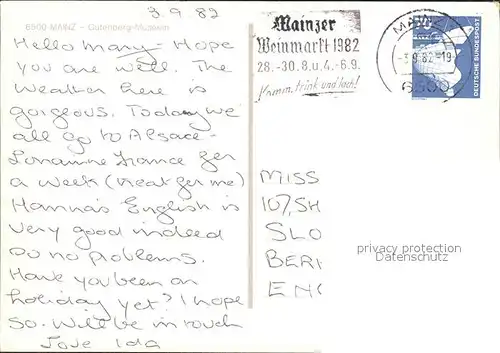 3.9.82
6500 MAINZ - Gutenberg-Museum
Hello Mary - Hope
you are well. The
Weather here is
gorgeous. Today we
all go to Alsace-
Lorrainne France for
a week (treat for me)
Hanna's English is
very good indeed
so no problems.
Have you been on
holiday yet? I hope
so. Will be in touch
Love Ida
Mainzer
Weinmarkt 1982
28.-30.8.u.4.-6.9.
Komm, trink und lach!
MAINZ
-3.9.82-19
6500
DEUTSCHE BUNDESPOST
MISS
107, SH
SLO
BERK
ENG
privacy protection
Datenschutz